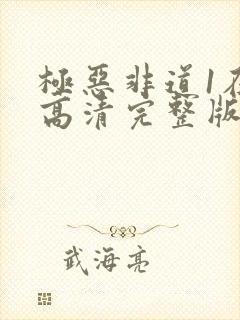 極惡非道1在
高清完整版
武海亮